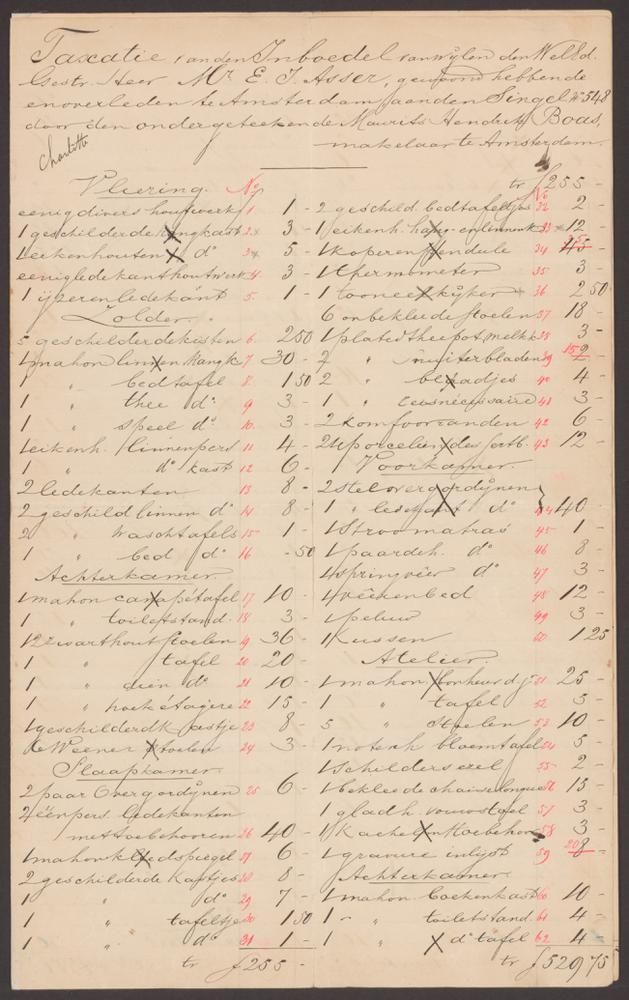 Taxatie van den Inboedel van wijlen den WelEd.
Gestr. Heer Mr. E. J. Asser, gewoond hebbende
en overleden te Amsterdam aan den Singel No 548
door den ondergeteekende Maurits Hendrik Boas,
makelaar te Amsterdam.
Charlotte
Vliering. No
eenig divers houtwerk 1 1 -
1 geschilderde hangkast 2 3 -
1 eikenhouten do 3 5 -
eenig ledekanthoutwerk 4 3 -
1 ijzeren ledekant 5 1 -
Zolder.
5 geschilderde kisten 6 2 50
1 mahon linnen hangk 7 30 -
1 " bedtafel 8 1 50
1 " thee do 9 3 -
1 " speel do 10 3 -
1 eikenh. linnenpers 11 4 -
1 " do kast 12 6 -
2 ledekanten 13 8 -
2 geschild linnen do 14 8 -
2 " waschtafels 15 1 -
1 " bed do 16 - 50
Achterkamer.
1 mahon canapétafel 17 10 -
1 " toiletstand. 18 3 -
12 zwarthout stoelen 19 36 -
1 " tafel 20 20 -
1 " dien do 21 10 -
1 " hoek étagere 22 15 -
1 geschilderd kastje 23 8 -
Weener stoelen 24 3 -
Slaapkamer.
2 paar Overgordijnen 25 6 -
2 éénpers. ledekanten
met toebehooren 26 40 -
1 mahon kleedspiegel 27 6 -
2 geschilderde kastjes 28 8 -
1 " do 29 7 -
1 " tafeltje 30 1 50
1 " do 31 1 -
tr f 255 -
tr f 255 -
No
2 geschild. bedtafeltjes 32 2 -
1 eikenh. hang- en linnenk 33 12
1 koperen pendule 34 45 -
1 thermometer 35 3 -
1 tooneelkijker 36 2 50
6 onbekleede stoelen 37 18 -
1 plated theepot, melkk 38 3 -
2 " presenteerbladen 39 15 -
2 " blaadjes 40 4 -
1 " theenecessaire 41 3 -
2 komfooranden 42 6 -
24 porcelein dessertb. 43 12 -
Voorkamer.
2 stel overgordijnen
1 " ledekant do 44 40 -
1 Stroomatras 45 1 -
1 paardeh. do 46 8 -
1 springveer do 47 3 -
1 veerenbed 48 12 -
1 peluw 49 3 -
1 kussen 50 1 25
Atelier.
1 mahon bonheur d j 51 25 -
1 " tafel 52 5 -
5 " stoelen 53 10 -
1 notenh bloemtafel 54 5 -
1 Schildersezel 55 2 -
1 bekleede chaise longue 56 15 -
1 gladh. vouwstoel 57 3 -
1 Kachel en toebehoor 58 3 -
1 gravure in lijst 59 20 -
Achterkamer.
1 mahon. boekenkast 60 10 -
1 - " toiletstand 61 4 -
1 " do tafel 62 4 -
tr f 529 75